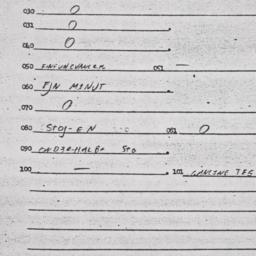 030 0
031 0
040 0
050 051 —
060 FJN MINUT
070 0
080 STOJ-EN 081 0
090 STO
100 — 101